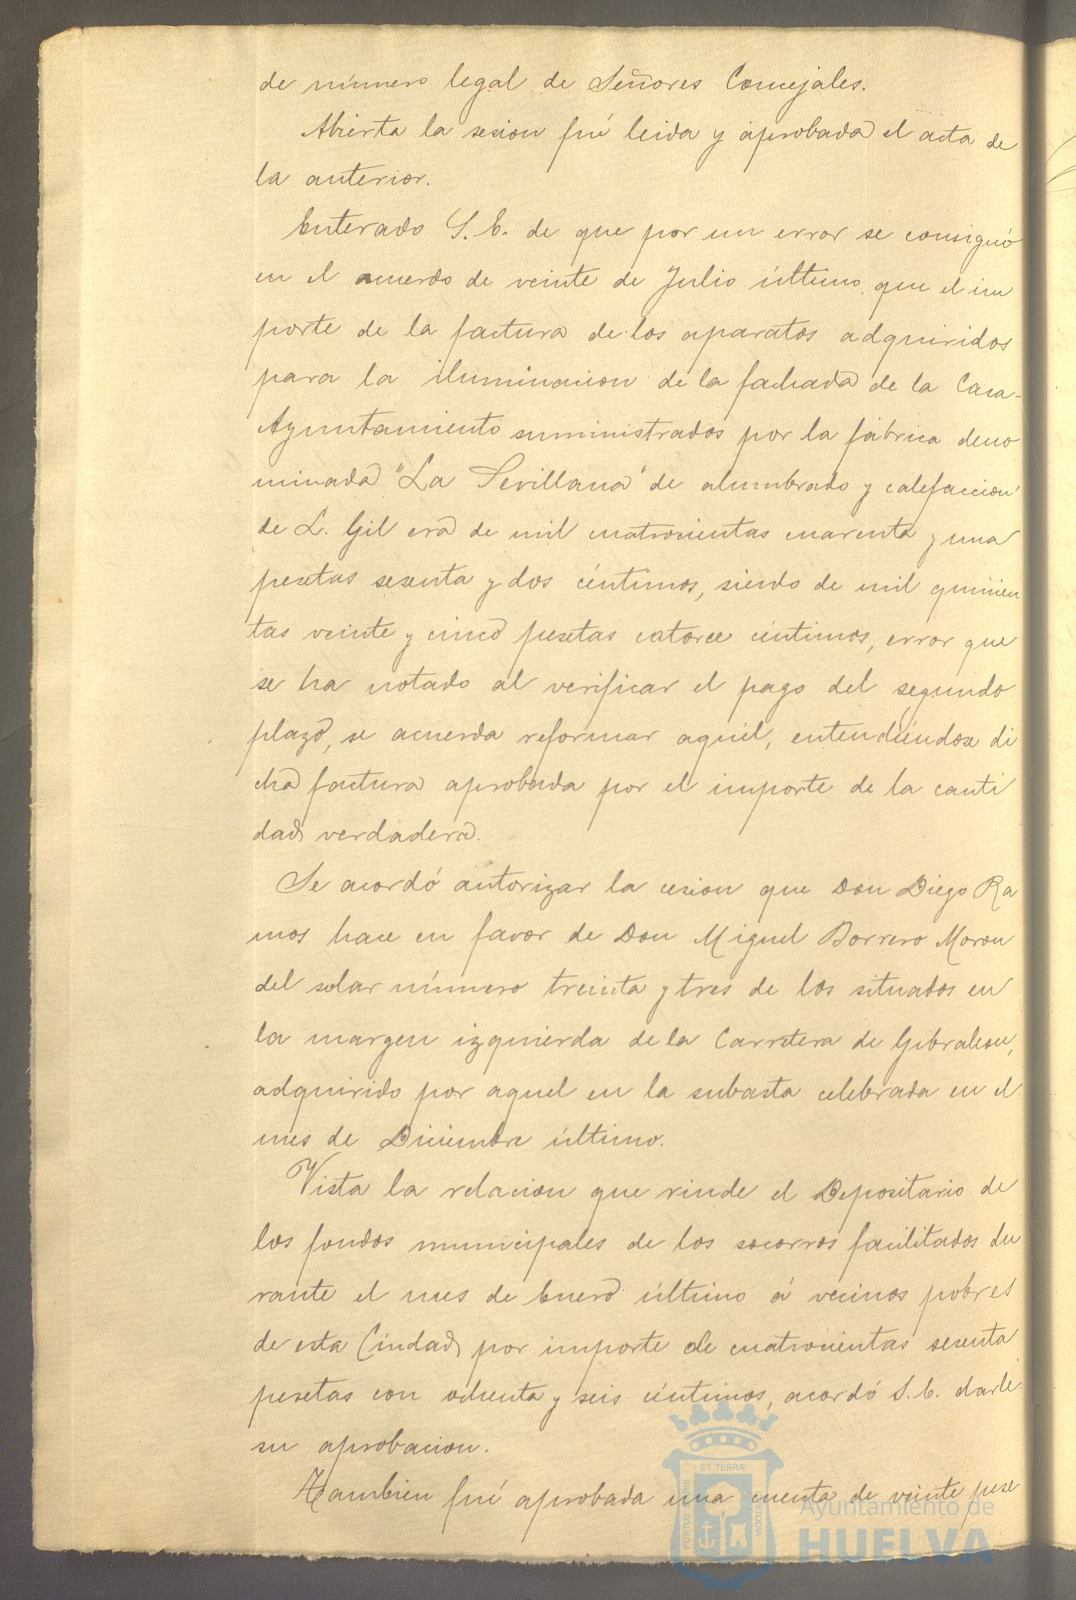 de número legal de Señores Concejales.
Abierta la sesion fué leida y aprobada el acta de
la anterior.
Enterado S. E. de que por un error se consignó
en el acuerdo de veinte de Julio último, que el im
porte de la factura de los aparatos adquiridos
para la iluminacion de la fachada de la Casa-
Ayuntamiento suministrados por la fábrica deno
minada "La Sevillana" de alumbrado y calefaccion
de L. Gil era de mil cuatrocientas cuarenta y una
pesetas sesenta y dos céntimos, siendo de mil quinien
tas veinte y cinco pesetas catorce céntimos, error que
se ha notado al verificar el pago del segundo
plazo, se acuerda reformar aquél, entendiéndose di
cha factura aprobada por el importe de la canti
dad verdadera.
Se acordó autorizar la cesion que Don Diego Ra
mos hace en favor de Don Miguel Borrero Moron
del solar número treinta y tres de los situados en
la margen izquierda de la Carretera de Gibraleon,
adquirido por aquel en la subasta celebrada en el
mes de Diciembre último.
Vista la relacion que rinde el Depositario de
los fondos municipales de los socorros facilitados du
rante el mes de Enero último á vecinos pobres
de esta Ciudad, por importe de cuatrocientas sesenta
pesetas con ochenta y seis céntimos, acordó S. E. darle
su aprobacion.
Tambien fué aprobada una cuenta de veinte pese
ET TERRÆ
PORTUS MARIS
CUSTODIA
Ayuntamiento de
HUELVA